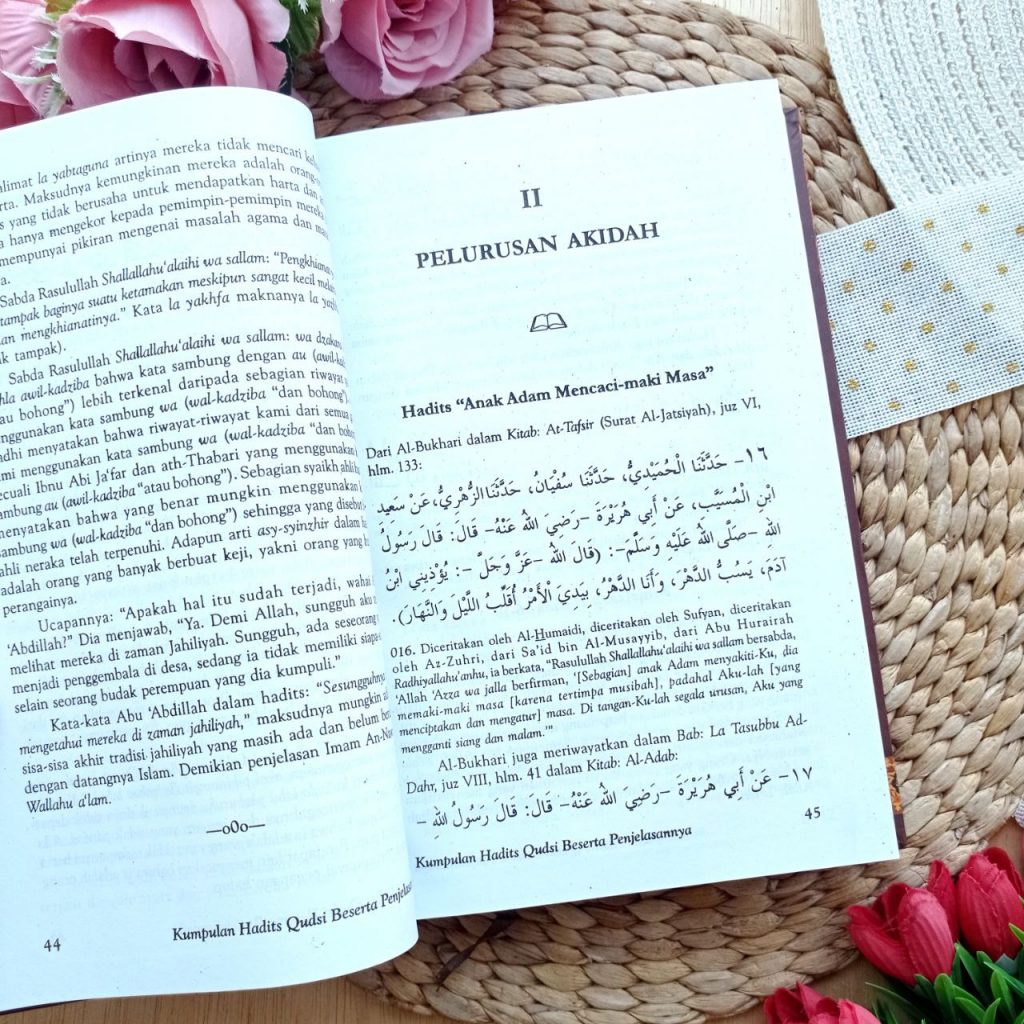 la yabtaguna artinya mereka tidak mencari
Maksudnya kemungkinan mereka adalah
yang tidak berusaha untuk mendapatkan harta dan
hanya mengekor kepada pemimpin-pemimpin mereka
mempunyai pikiran mengenai masalah agama dan
Sabda Rasulullah Shallallahu‘alaihi wa sallam:
tampak baginya suatu ketamakan meskipun sangat kecil
mengkhianatinya.” Kata la yakhfa maknanya la
tampak).
Sabda Rasulullah Shallallahu‘alaihi wa sallam: wa
awil-kadziba bahwa kata sambung dengan au
bohong”) lebih terkenal daripada sebagian riwayat
menggunakan kata sambung wa (wal-kadziba “dan bohong”).
menyatakan bahwa riwayat-riwayat kami dari semua
menggunakan kata sambung wa (wal-kadziba “dan
Ibnu Abi Ja‘far dan ath-Thabari yang menggunakan
sambung au (awil-kadziba “atau bohong”). Sebagian syaikh ahli
menyatakan bahwa yang benar mungkin menggunakan
sambung wa (wal-kadziba “dan bohong”) sehingga yang
ahli neraka telah terpenuhi. Adapun arti asy-syinzhir dalam
adalah orang yang banyak berbuat keji, yakni orang yang
perangainya.
Ucapannya: “Apakah hal itu sudah terjadi, wahai
‘Abdillah?” Dia menjawab, “Ya. Demi Allah, sungguh aku
melihat mereka di zaman Jahiliyah. Sungguh, ada seseorang
menjadi penggembala di desa, sedang ia tidak memiliki
selain seorang budak perempuan yang dia kumpuli.”
Kata-kata Abu ‘Abdillah dalam hadits: “Sesungguhnya
mengetahui mereka di zaman jahiliyah,” maksudnya mungkin
sisa-sisa akhir tradisi jahiliyah yang masih ada dan belum
dengan datangnya Islam. Demikian penjelasan Imam
Wallahu a‘lam.
—o0o—
44
Kumpulan Hadits Qudsi Beserta
II
PELURUSAN AKIDAH
Hadits “Anak Adam Mencaci-maki Masa”
Dari Al-Bukhari dalam Kitab: At-Tafsir (Surat Al-Jatsiyah), juz VI,
hlm. 133:
١٦– حَدَّثَنَا الْحُمَيْدِيُّ، حَدَّثَنَا سُفْيَانُ، حَدَّثَنَا الزُّهْرِيُّ، عَنْ سَعِيدِ
ابْنِ الْمُسَيَّبِ، عَنْ أَبِي هُرَيْرَةَ –رَضِيَ اللهُ عَنْهُ– قَالَ: قَالَ رَسُولُ
اللهِ –صَلَّى اللهُ عَلَيْهِ وَسَلَّمَ–: (قَالَ اللهُ –عَزَّ وَجَلَّ –: يُؤْذِينِي ابْنُ
آدَمَ، يَسُبُّ الدَّهْرَ، وَأَنَا الدَّهْرُ، بِيَدِي الْأَمْرُ أُقَلِّبُ اللَّيْلَ وَالنَّهَارَ).
016. Diceritakan oleh Al-Humaidi, diceritakan oleh Sufyan, diceritakan
oleh Az-Zuhri, dari Sa‘id bin Al-Musayyib, dari Abu Hurairah
Radhiyallahu‘anhu, ia berkata, “Rasulullah Shallallahu‘alaihi wa sallam bersabda,
‘Allah ‘Azza wa jalla berfirman, ‘[Sebagian] anak Adam menyakiti-Ku, dia
memaki-maki masa [karena tertimpa musibah], padahal Aku-lah [yang
menciptakan dan mengatur] masa. Di tangan-Ku-lah segala urusan, Aku yang
mengganti siang dan malam.’”
Al-Bukhari juga meriwayatkan dalam Bab: La Tasubbu Ad-
Dahr, juz VIII, hlm. 41 dalam Kitab: Al-Adab:
١٧– عَنْ أَبِي هُرَيْرَةَ –رَضِيَ اللهُ عَنْهُ– قَالَ: قَالَ رَسُولُ اللهِ –
Kumpulan Hadits Qudsi Beserta Penjelasannya
45